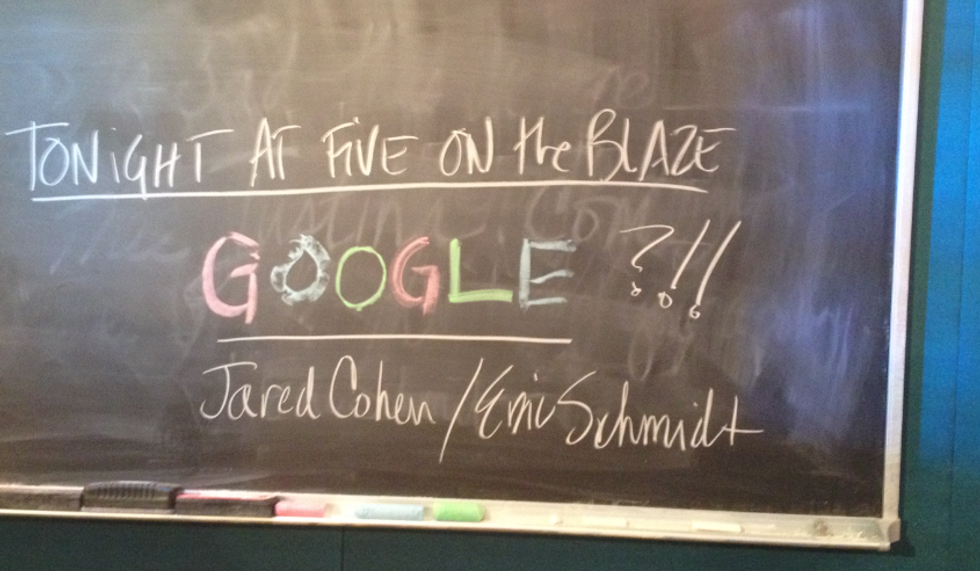 TONiGHT AT FiVE ON the BLAZE
GOOGLE ?!!
Jared Cohen / Eric Schmidt